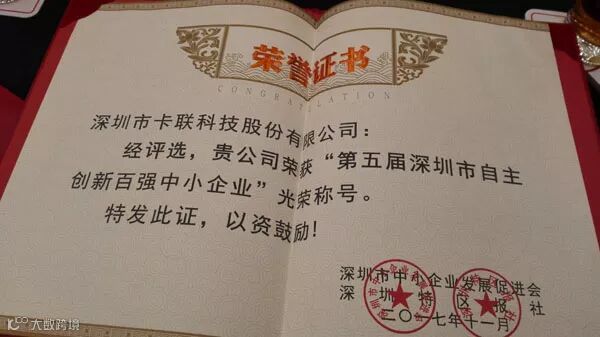 荣誉证书
CONGRATULATION
深圳市卡联科技股份有限公司：
经评选，贵公司荣获“第五届深圳市自主
创新百强中小企业”光荣称号。
特发此证，以资鼓励！
深圳市中小企业发展促进会
深圳特区报社
二〇一七年十一月
大数跨境